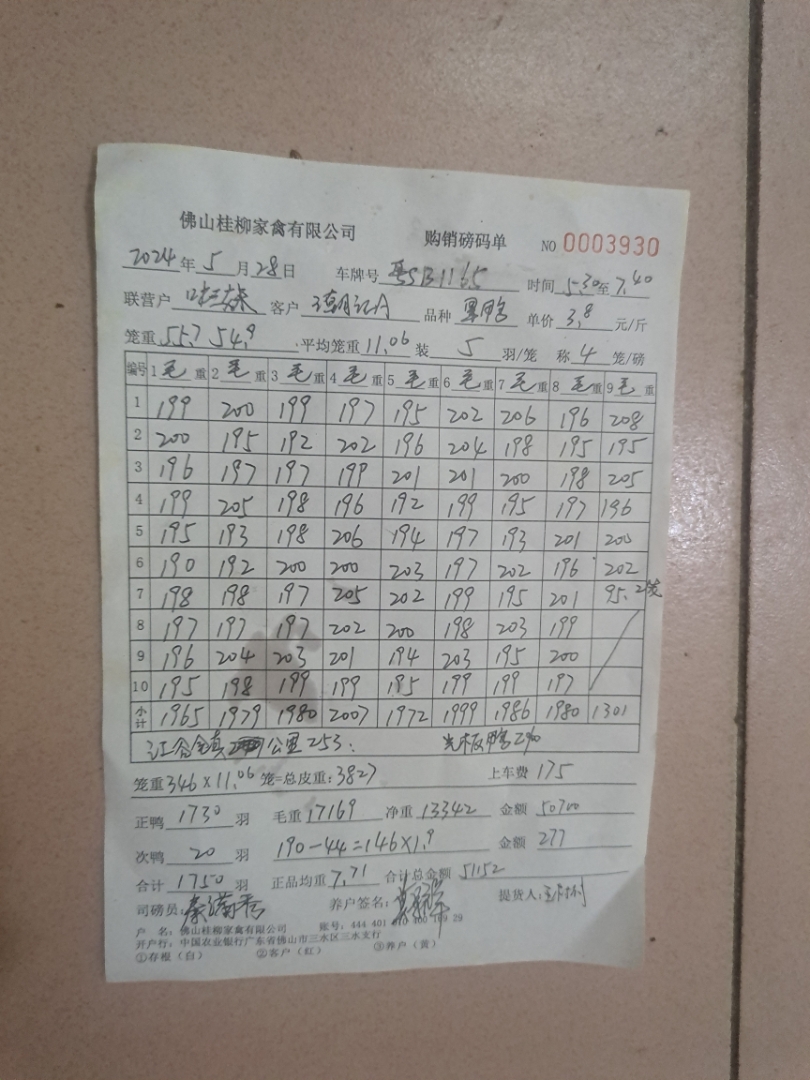 佛山桂柳家禽有限公司 购销磅码单 NO 0003930
2024年5月28日 车牌号 粤SB1165 时间 5.30至7.40
联营户 客户 潮记A 品种 黑鸭 单价 3.8 元/斤
笼重 55.7 54.9 平均笼重 11.06 装 5 羽/笼 称 4 笼/磅
编号 1毛重 2毛重 3毛重 4毛重 5毛重 6毛重 7毛重 8毛重 9毛重
1 199 200 199 197 195 202 206 196 208
2 200 195 192 202 196 204 198 195 195
3 196 197 197 199 201 201 200 198 205
4 199 205 198 196 192 199 195 197 196
5 195 193 198 206 194 197 193 201 200
6 190 192 200 200 203 197 202 196 202
7 198 198 197 205 202 199 195 201 95.2笼
8 197 197 197 202 200 198 203 199
9 196 204 203 201 194 203 195 200
10 195 198 199 199 195 199 199 197
小计 1965 1979 1980 2007 1972 1999 1986 1980 1301
江谷镇 公里253. 光板鸭290
笼重346×11.06笼=总皮重:3827 上车费 175
正鸭 1730 羽 毛重 17169 净重 13342 金额 50700
次鸭 20 羽 190-44=146×1.9 金额 277
合计 1750 羽 正品均重 7.71 合计总金额 51152
司磅员: 养户签名: 提货人:
户 名:佛山桂柳家禽有限公司 账号:444 401
开户行:中国农业银行广东省佛山市三水区三水支行
①存根(白) ②客户(红) ③养户(黄)